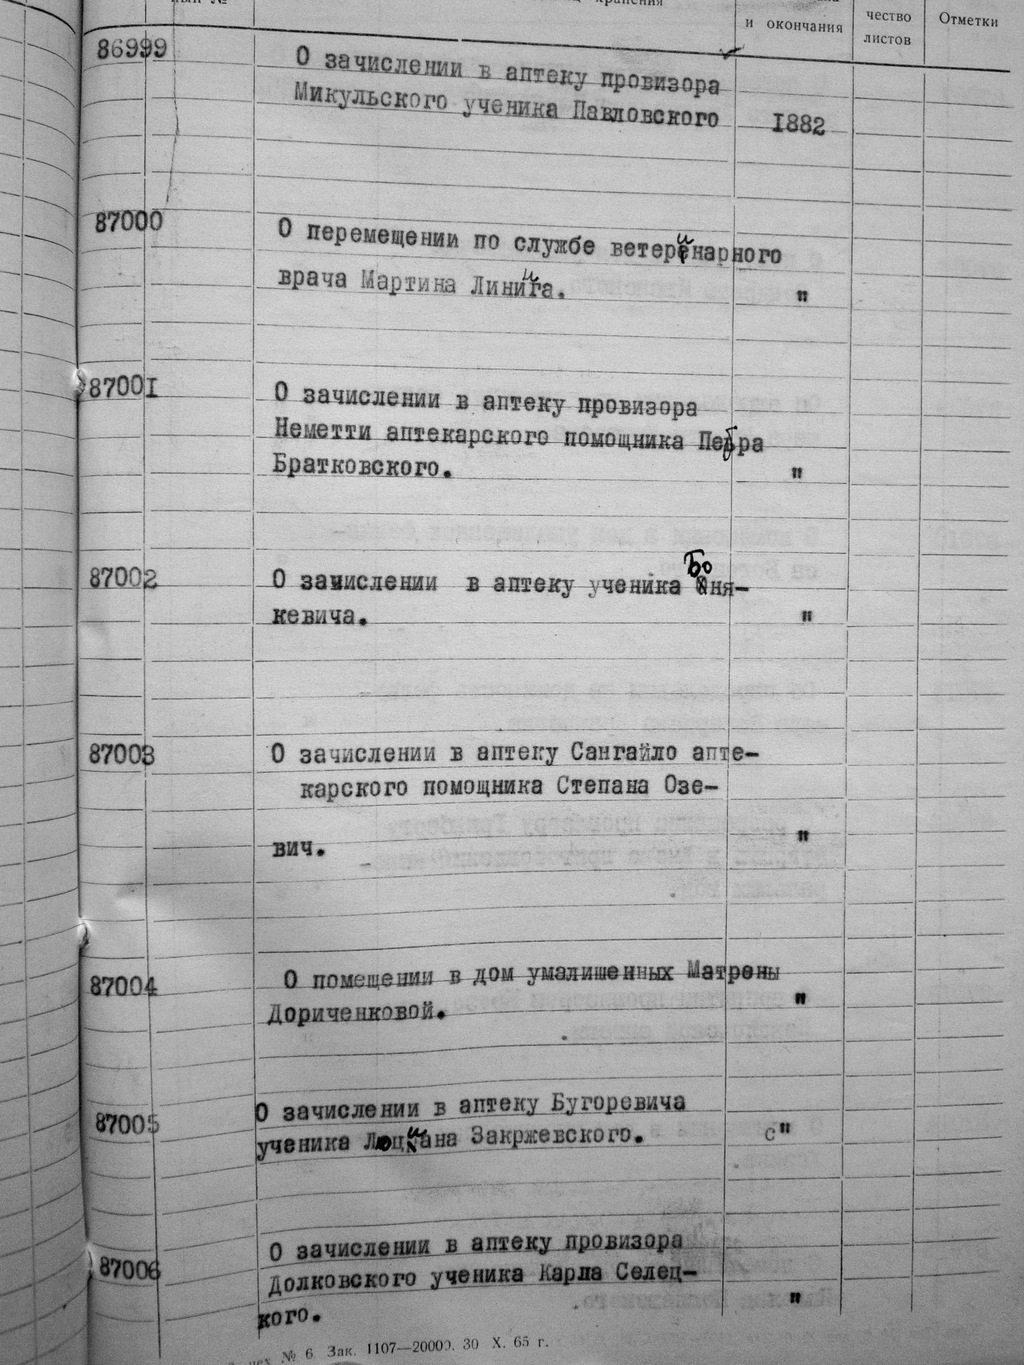 ный №
хранения
и окончания
чество
листов
Отметки
86999
О зачислении в аптеку провизора
Микульского ученика Павловского
1882
87000
О перемещении по службе ветеринарного
врача Мартина Линига.
"
87001
О зачислении в аптеку провизора
Неметти аптекарского помощника Петра
Братковского.
"
87002
О зачислении в аптеку ученика Боня-
кевича.
"
87003
О зачислении в аптеку Сангайло апте-
карского помощника Степана Озе-
вич.
"
87004
О помещении в дом умалишенных Матрены
Дориченковой.
"
87005
О зачислении в аптеку Бугоревича
ученика Люциана Закржевского.
с"
87006
О зачислении в аптеку провизора
Долковского ученика Карла Селец-
кого.
"
№ 6 Зак. 1107—20000. 30 X. 65 г.